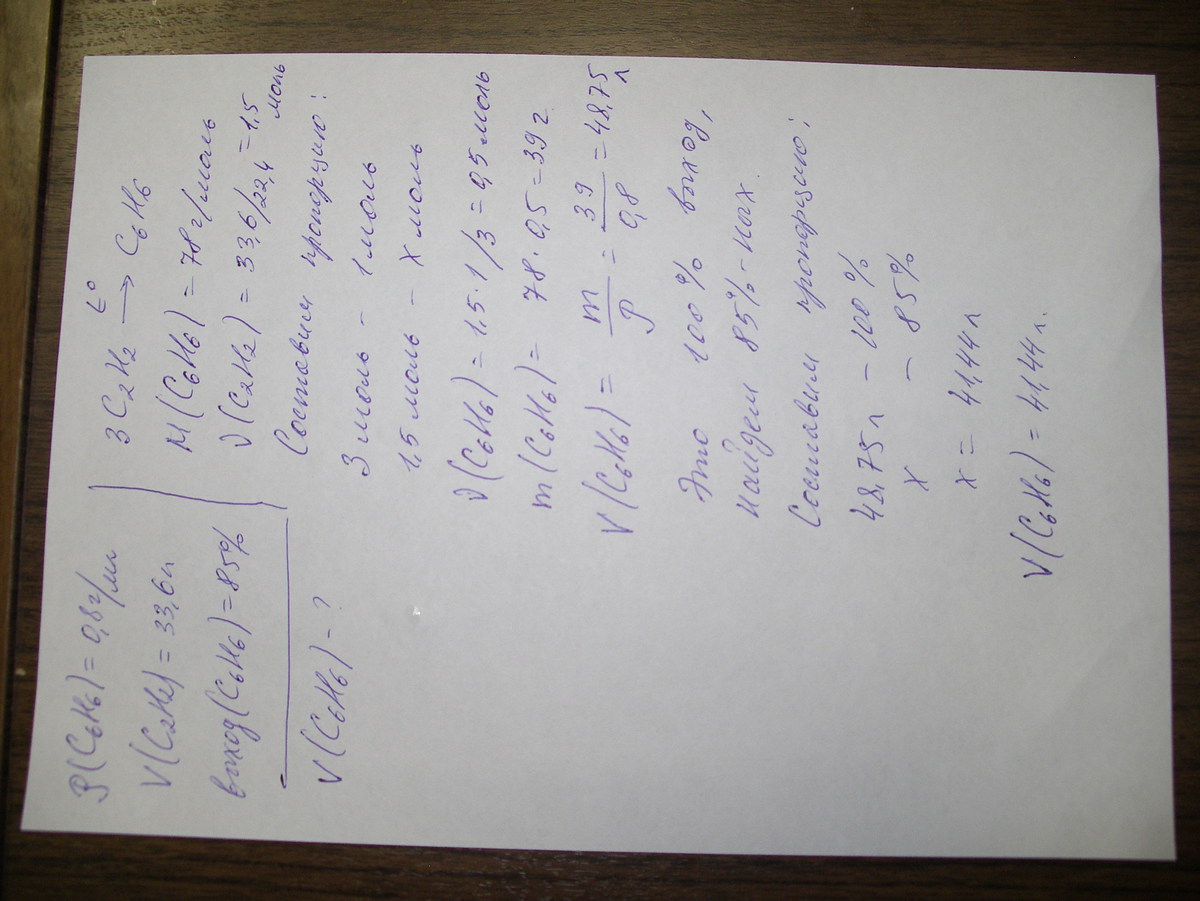 ρ(C₆H₆) = 0,8 г/мл
V(C₂H₂) = 33,6 л
выход(C₆H₆) = 85%
V(C₆H₆) - ?
3 C₂H₂ t° → C₆H₆
M(C₆H₆) = 78 г/моль
ν(C₂H₂) = 33,6/22,4 = 1,5 моль
Составим пропорцию:
3 моль - 1 моль
1,5 моль - х моль
ν(C₆H₆) = 1,5 · 1/3 = 0,5 моль
m(C₆H₆) = 78 · 0,5 = 39 г
V(C₆H₆) = m/ρ = 39/0,8 = 48,75 л
Это 100% выход,
найдем 85%-ных.
Составим пропорцию:
48,75 л - 100%
х - 85%
х = 41,44 л
V(C₆H₆) = 41,44 л.